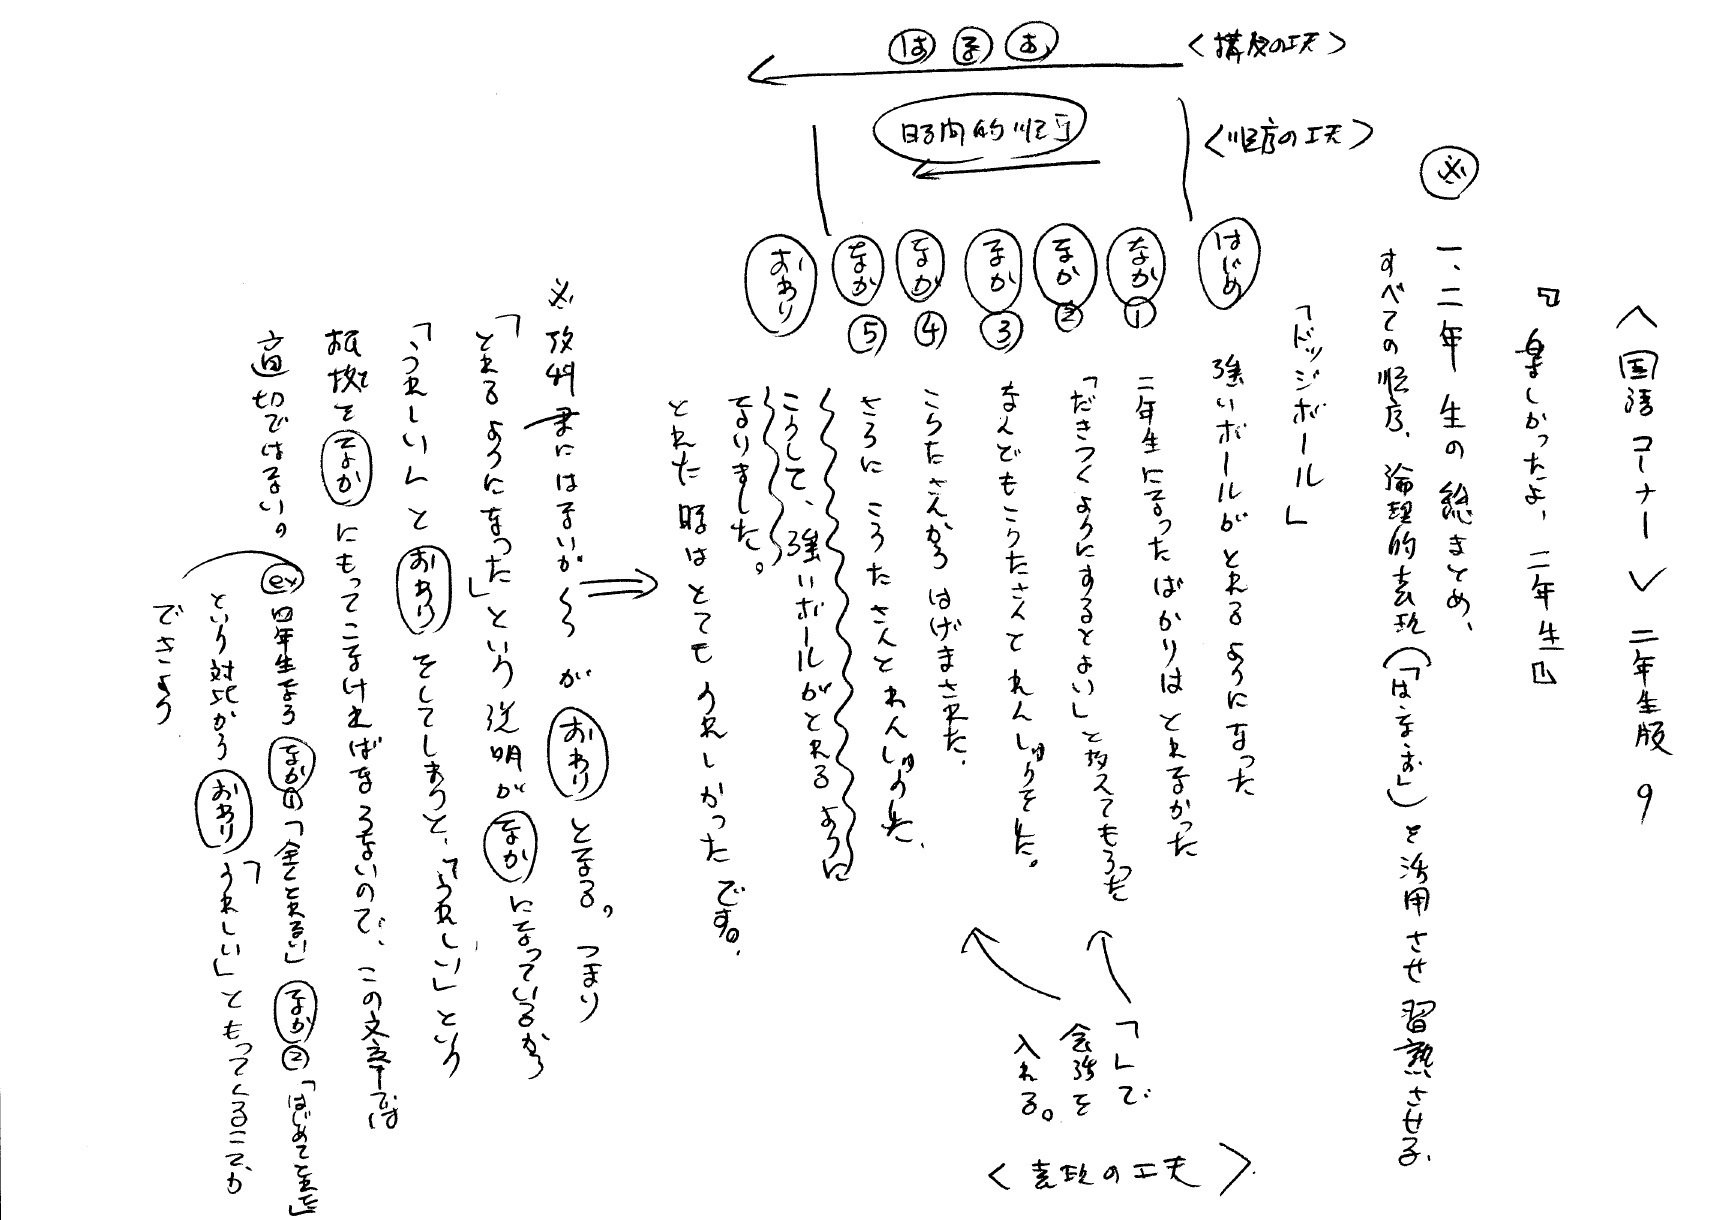 〈国語コーナー〉 二年生版 9
『楽しかったよ、二年生』
※
一、二年生の総まとめ、
すべての順序、論理的表現(「はなお」)を活用させ習熟させる。
〈構成の工夫〉
お な は
〈順序の工夫〉
時間的順序
「ドッジボール」
はじめ 強いボールがとれるようになった
なか① 二年生になったばかりはとれなかった
なか② 「だきつくようにするとよい」と教えてもらった
なか③ なんどもこうたさんとれんしゅうをした。
なか④ こうたさんからはげまされた。
なか⑤ さらにこうたさんとれんしゅうした、
おわり こうして、強いボールがとれるように
なりました。
とれた時はとてもうれしかったです。
「」で
会話を
入れる。
〈表現の工夫〉
※教科書にはないが〜がおわりとなる。つまり
「とれるようになった」という説明がなかになっているから
「うれしい」とおわりをしてしまうと、「うれしい」という
根拠をなかにもってこなければならないので、この文章では
適切ではない。
ex 四年生なら なか①「全てとれない」なか②「はじめて
という対比からおわり「うれしい」ともってくることが
できよう